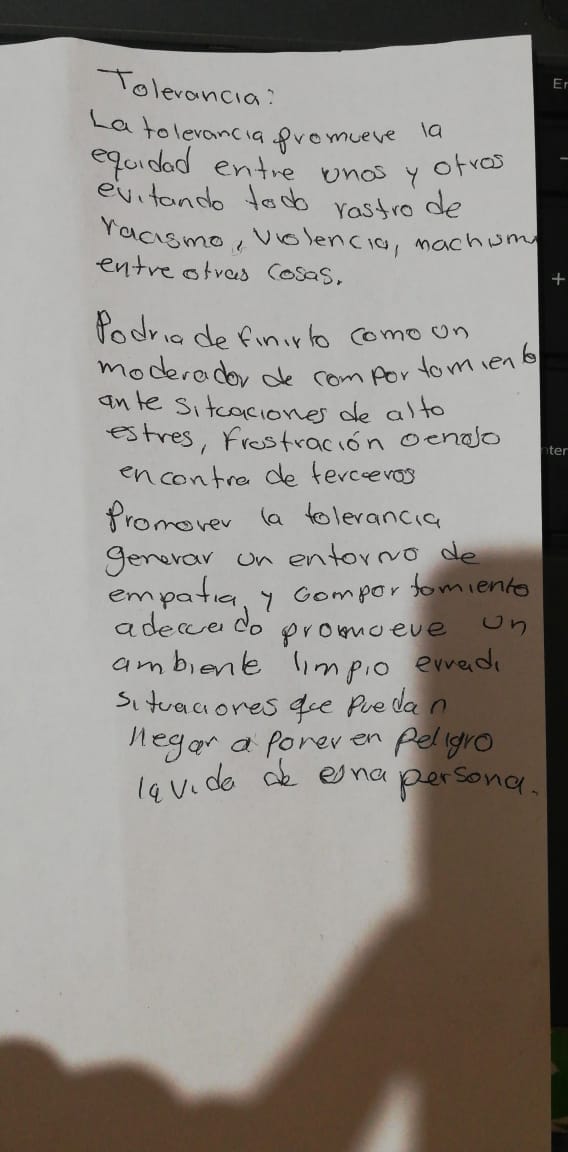 Tolerancia:
La tolerancia promueve la
equidad entre unos y otros
evitando todo rastro de
racismo, violencia, machism
entre otras cosas.
Podria definirlo como un
moderador de comportamiento
ante situaciones de alto
estres, frostración o enojo
en contra de terceros
Promover la tolerancia
generar un entorno de
empatia, y comportamiento
adecuado promueve un
ambiente limpio erradi
situaciones que puedan
llegar a poner en peligro
la vida de una persona.
En
-
+
nter